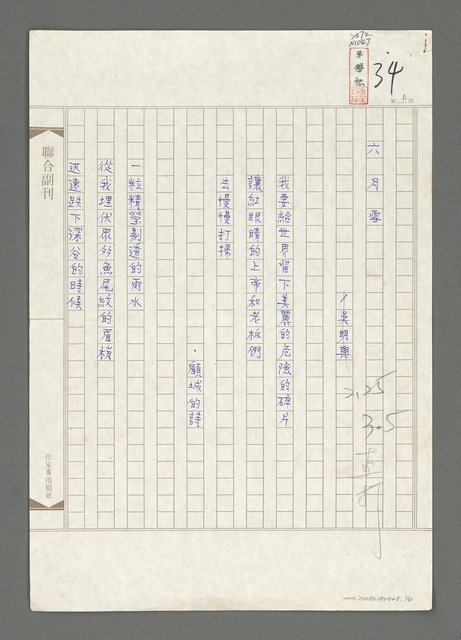 34
六月雪
/吳明興
我要給世界留下美麗的危險的碎片
讓紅眼睛的上帝和老板們
去慢慢打掃
·顧城的詩
一粒精瑩剔透的雨水
從我埋伏眾多魚尾紋的眉梢
迅速跌下深谷的時候
聯合副刊
作家專用稿紙
2.25
3.5